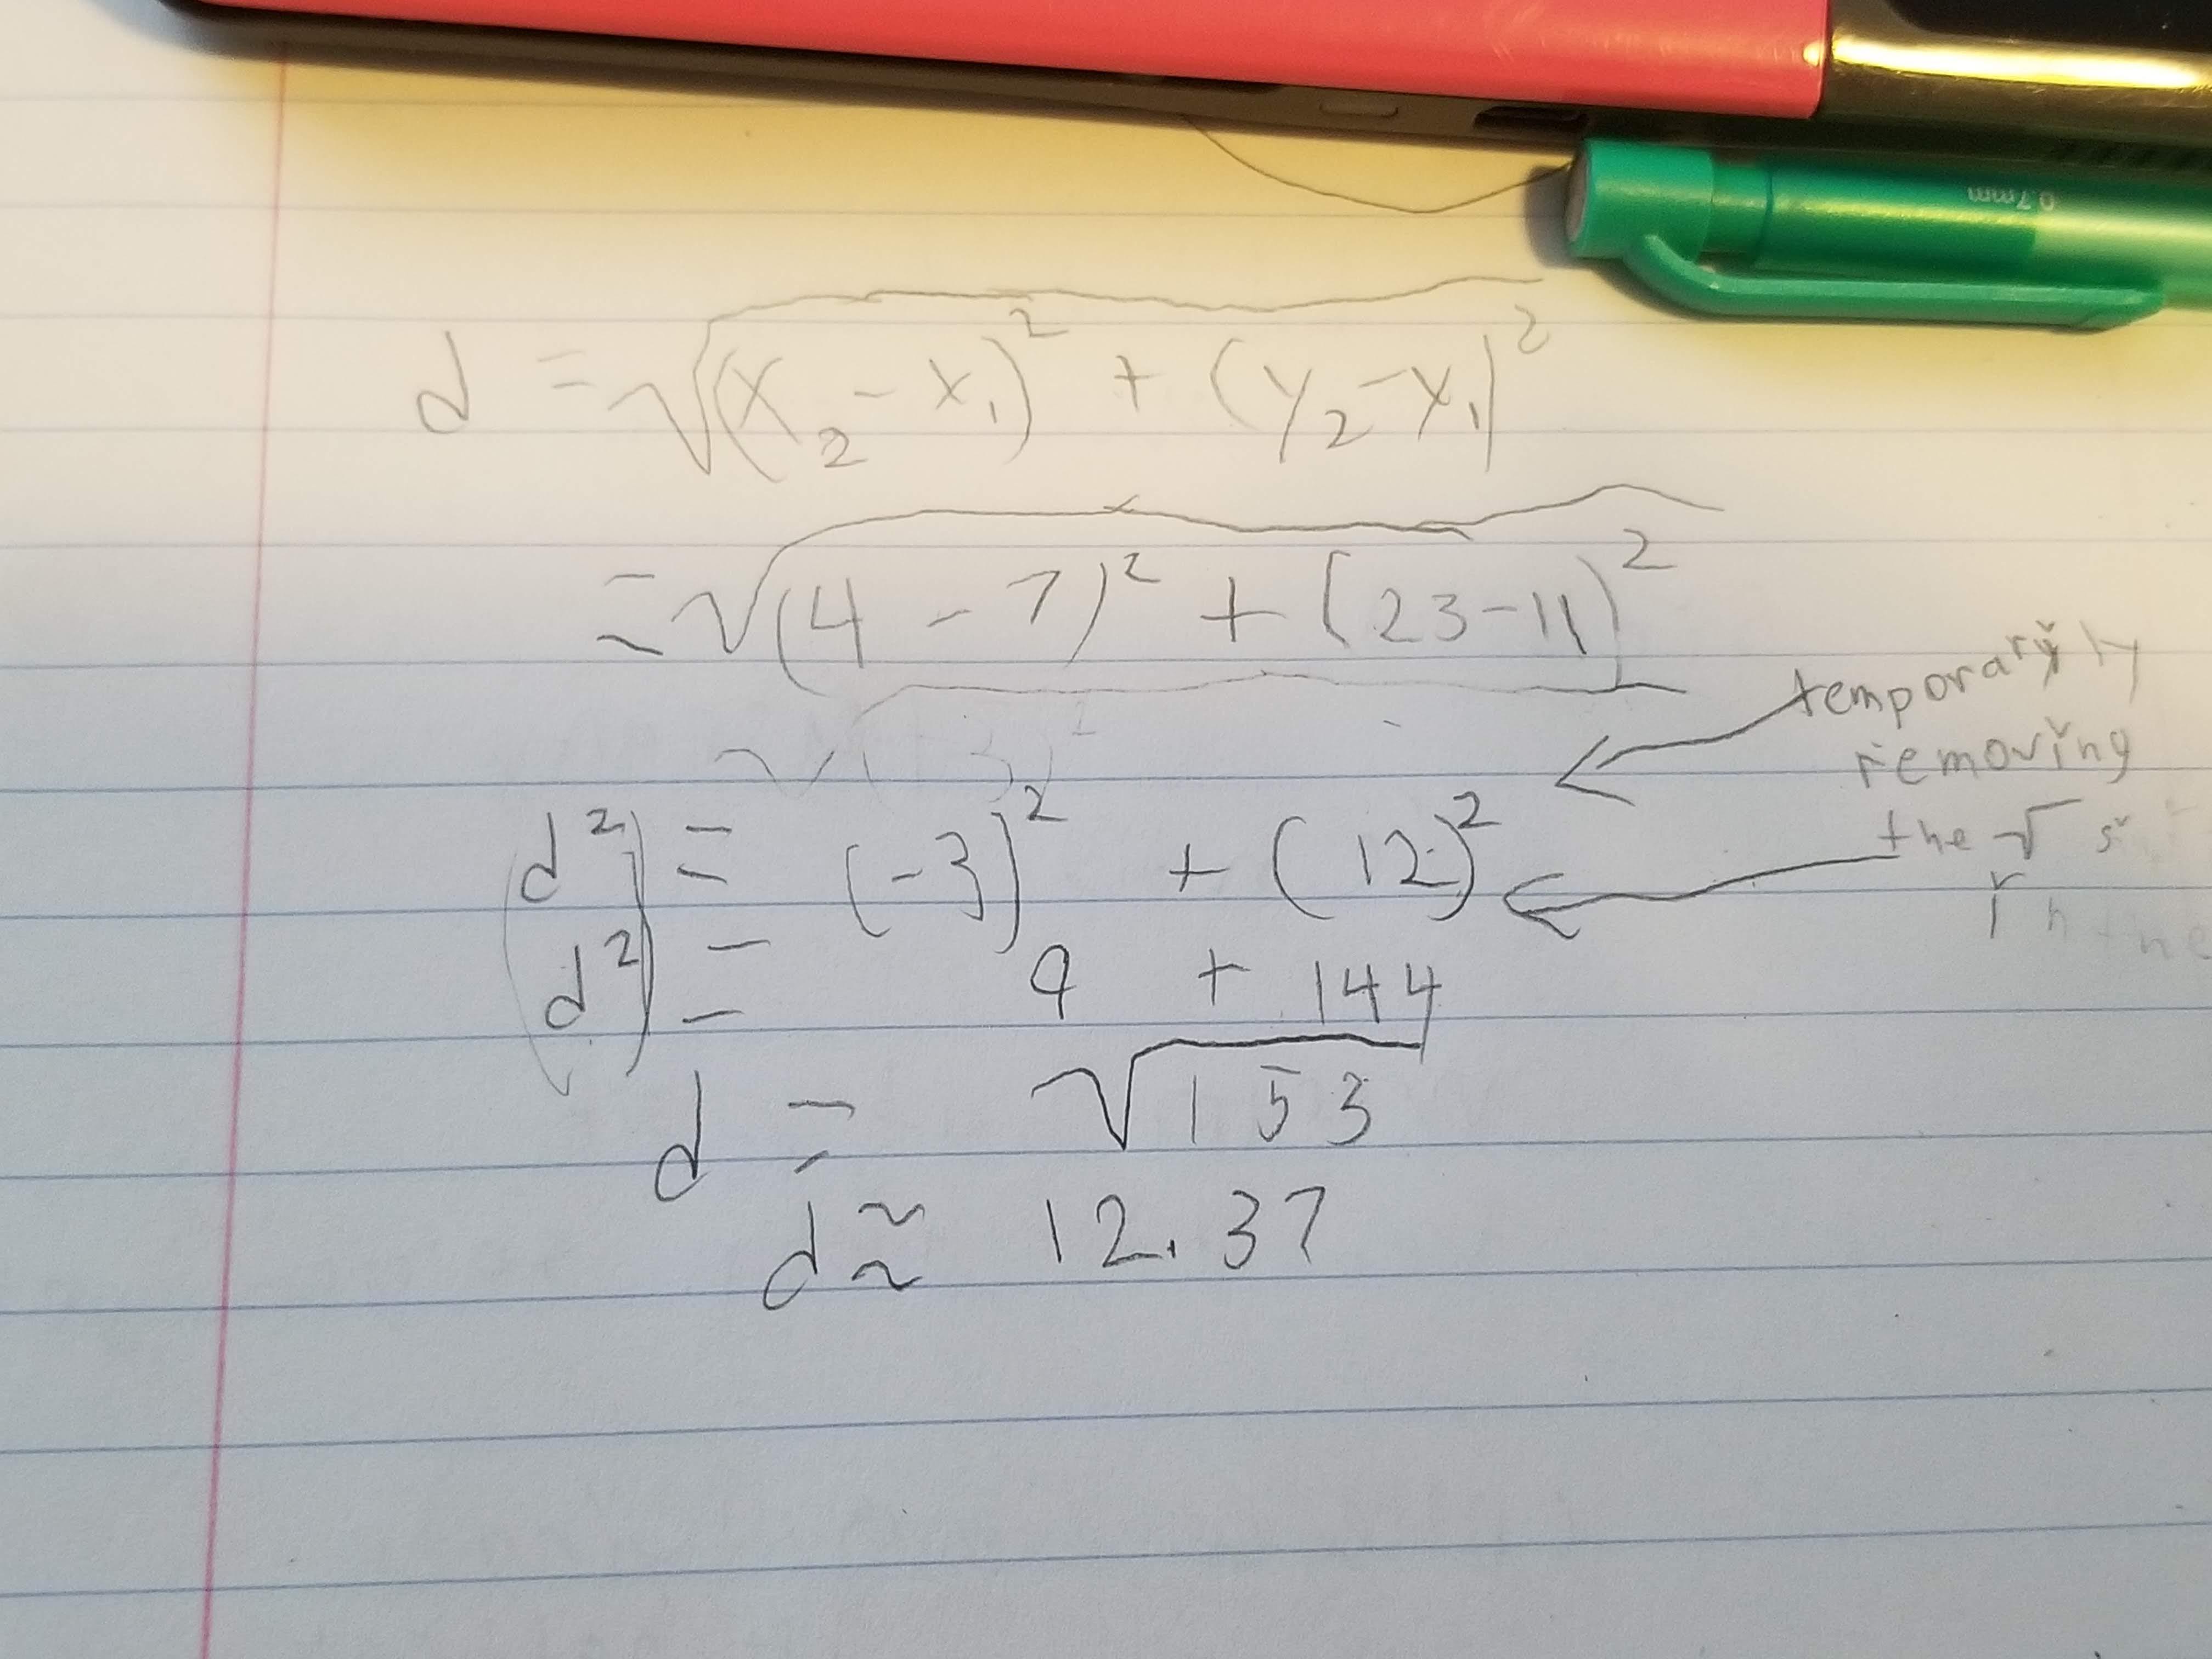 d = √(x₂ - x₁)² + (y₂ - y₁)²
= √(4 - 7)² + (23 - 11)²
√(-3)²
d² = (-3)² + (12)²
d² = 9 + 144
d = √153
d ≈ 12.37
temporarily
removing
the √
0.7mm